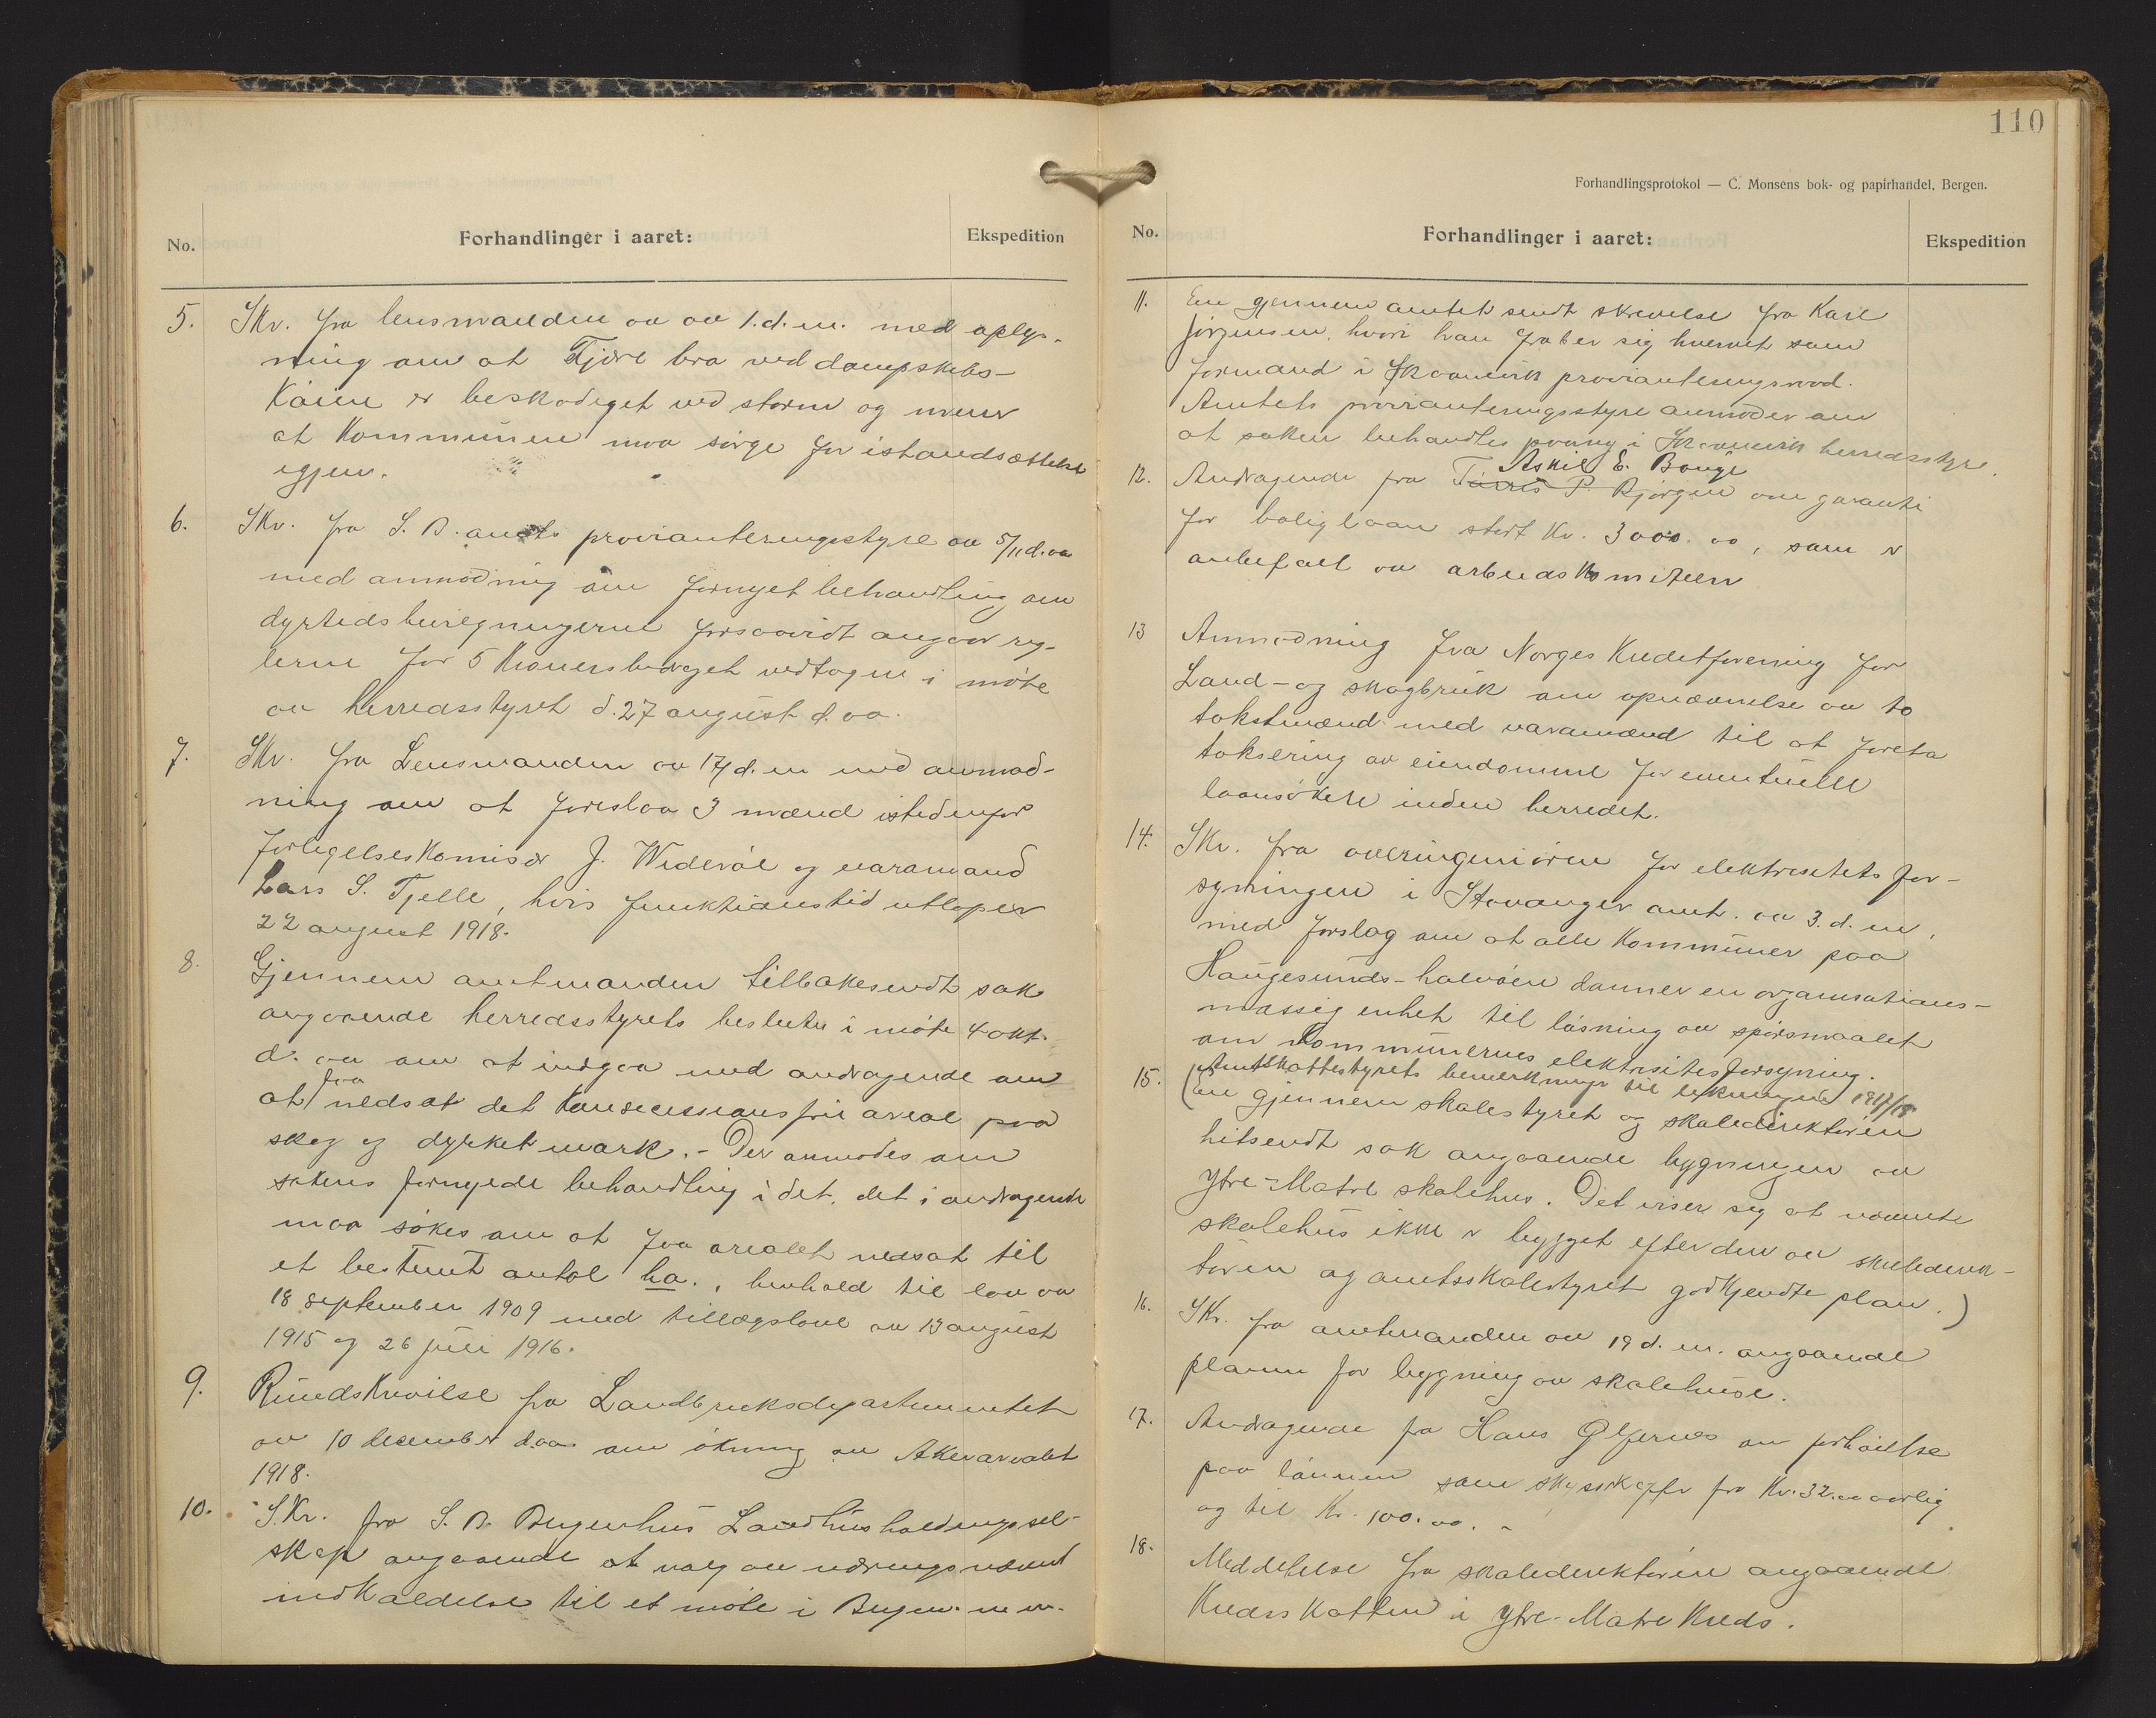 No.
Forhandlinger i aaret:
Ekspedition
5. Skr. fra lensmanden av 1. d. m. med oplys-
ning om at Fjære bro ved dampskibs-
kaien er beskadiget ved storm og mener
at kommunen maa sørge for istandsættelse
igjen.
6. Skr. fra S. B. amts provianteringsstyre av 5/11 d. aa
med anmodning om fornyet behandling om
dyrtidsbevilgningerne forsaavidt angaar reg-
lerne for 5 kronersbidraget vedtagne i møte
av herredsstyret d. 27 august d. aa.
7. Skr. fra Lensmanden av 17/ d. m med anmod-
ning om at foreslaa 3 mænd istedenfor
forligelseskomisær J. Miderøe og varamand
Lars S. Tjelle, hvis funktionstid utløper
22 august 1918.
8. Gjennem amtmanden tilbakesendt sak
angaaende herredsstyrets beslutn i møte 4 okt.
d. aa om at indgaa med andragende om
at faa nedsat det konsecessionsfrie areal paa
skog og dyrket mark. - Der anmodes om
sakens fornyede behandling idet det i andragende
maa søkes om at faa arealet nedsat til
et bestemt antal ha., henhold til lov av
18 september 1909 med tillægslove av 13 august
1915 og 26 juli 1916.
9. Rundskrivelse fra Landbruksdepartementet
av 10 december d. aa om økning av Akerarealet
1918.
10. Skr. fra S. B. Bergenhus Landhusholdningssel-
skap angaaende at valg av nævnd
indkaldelse til et møte i Bergen m m.
110
Forhandlingsprotokol — C. Monsens bok- og papirhandel, Bergen.
No.
Forhandlinger i aaret:
Ekspedition
11. En gjennem amtet sendt skrivelse fra Karl
Jørgensen, hvori han fraber sig hvervet som
formand i Skaanevik provianteringsraad.
Amtets provianteringsstyre anmoder om
at saken behandles paany i Skaanevik herredsstyre.
Askil E. Bauge
12. Andragende fra Tørres P. Bjørgen om garanti
for boliglaan stort kr. 3000.00, som er
anbefalt av arbeidskomiteen
13 Anmodning fra Norges Kreditforening for
Land- og skogbruk om opnævnelse av to
takstmænd med varamænd til at foreta
taksering av eiendomme for eventuelle
laansøkere inden herredet.
14. Skr. fra overingeniøren for elektrisitetsfor-
syningen i Stavanger amt. av 3. d. m,
med forslag om at alle kommuner paa
Haugesunds-halvøen danner en organisations-
massig enhet til løsning av spørsmaalet
om kommunernes elektrisitetsforsyning.
Amtskattestyrets bemerkninger til likningen 1917/18
15. (En gjennem skolestyret og skoledirektøren
hitsendt sak angaaende bygningen av
Ytre-Matre skolehus. Det viser seg at nævnte
skolehus ikke er bygget efter den av skoledirek-
tøren og amtsskolestyret godkjendte plan.)
16. Skr. fra amtmanden av 19 d. m. angaaende
planer for bygning av skolehuse.
17. Andragende fra Hans om forhøielse
paa lønnen som skysskaffer fra Kr. 32.00 aarlig
og til Kr. 100.00. -
18. Meddelelse fra skoledirektøren angaaende
Kredsskatten i Ytre-Matre Kreds.